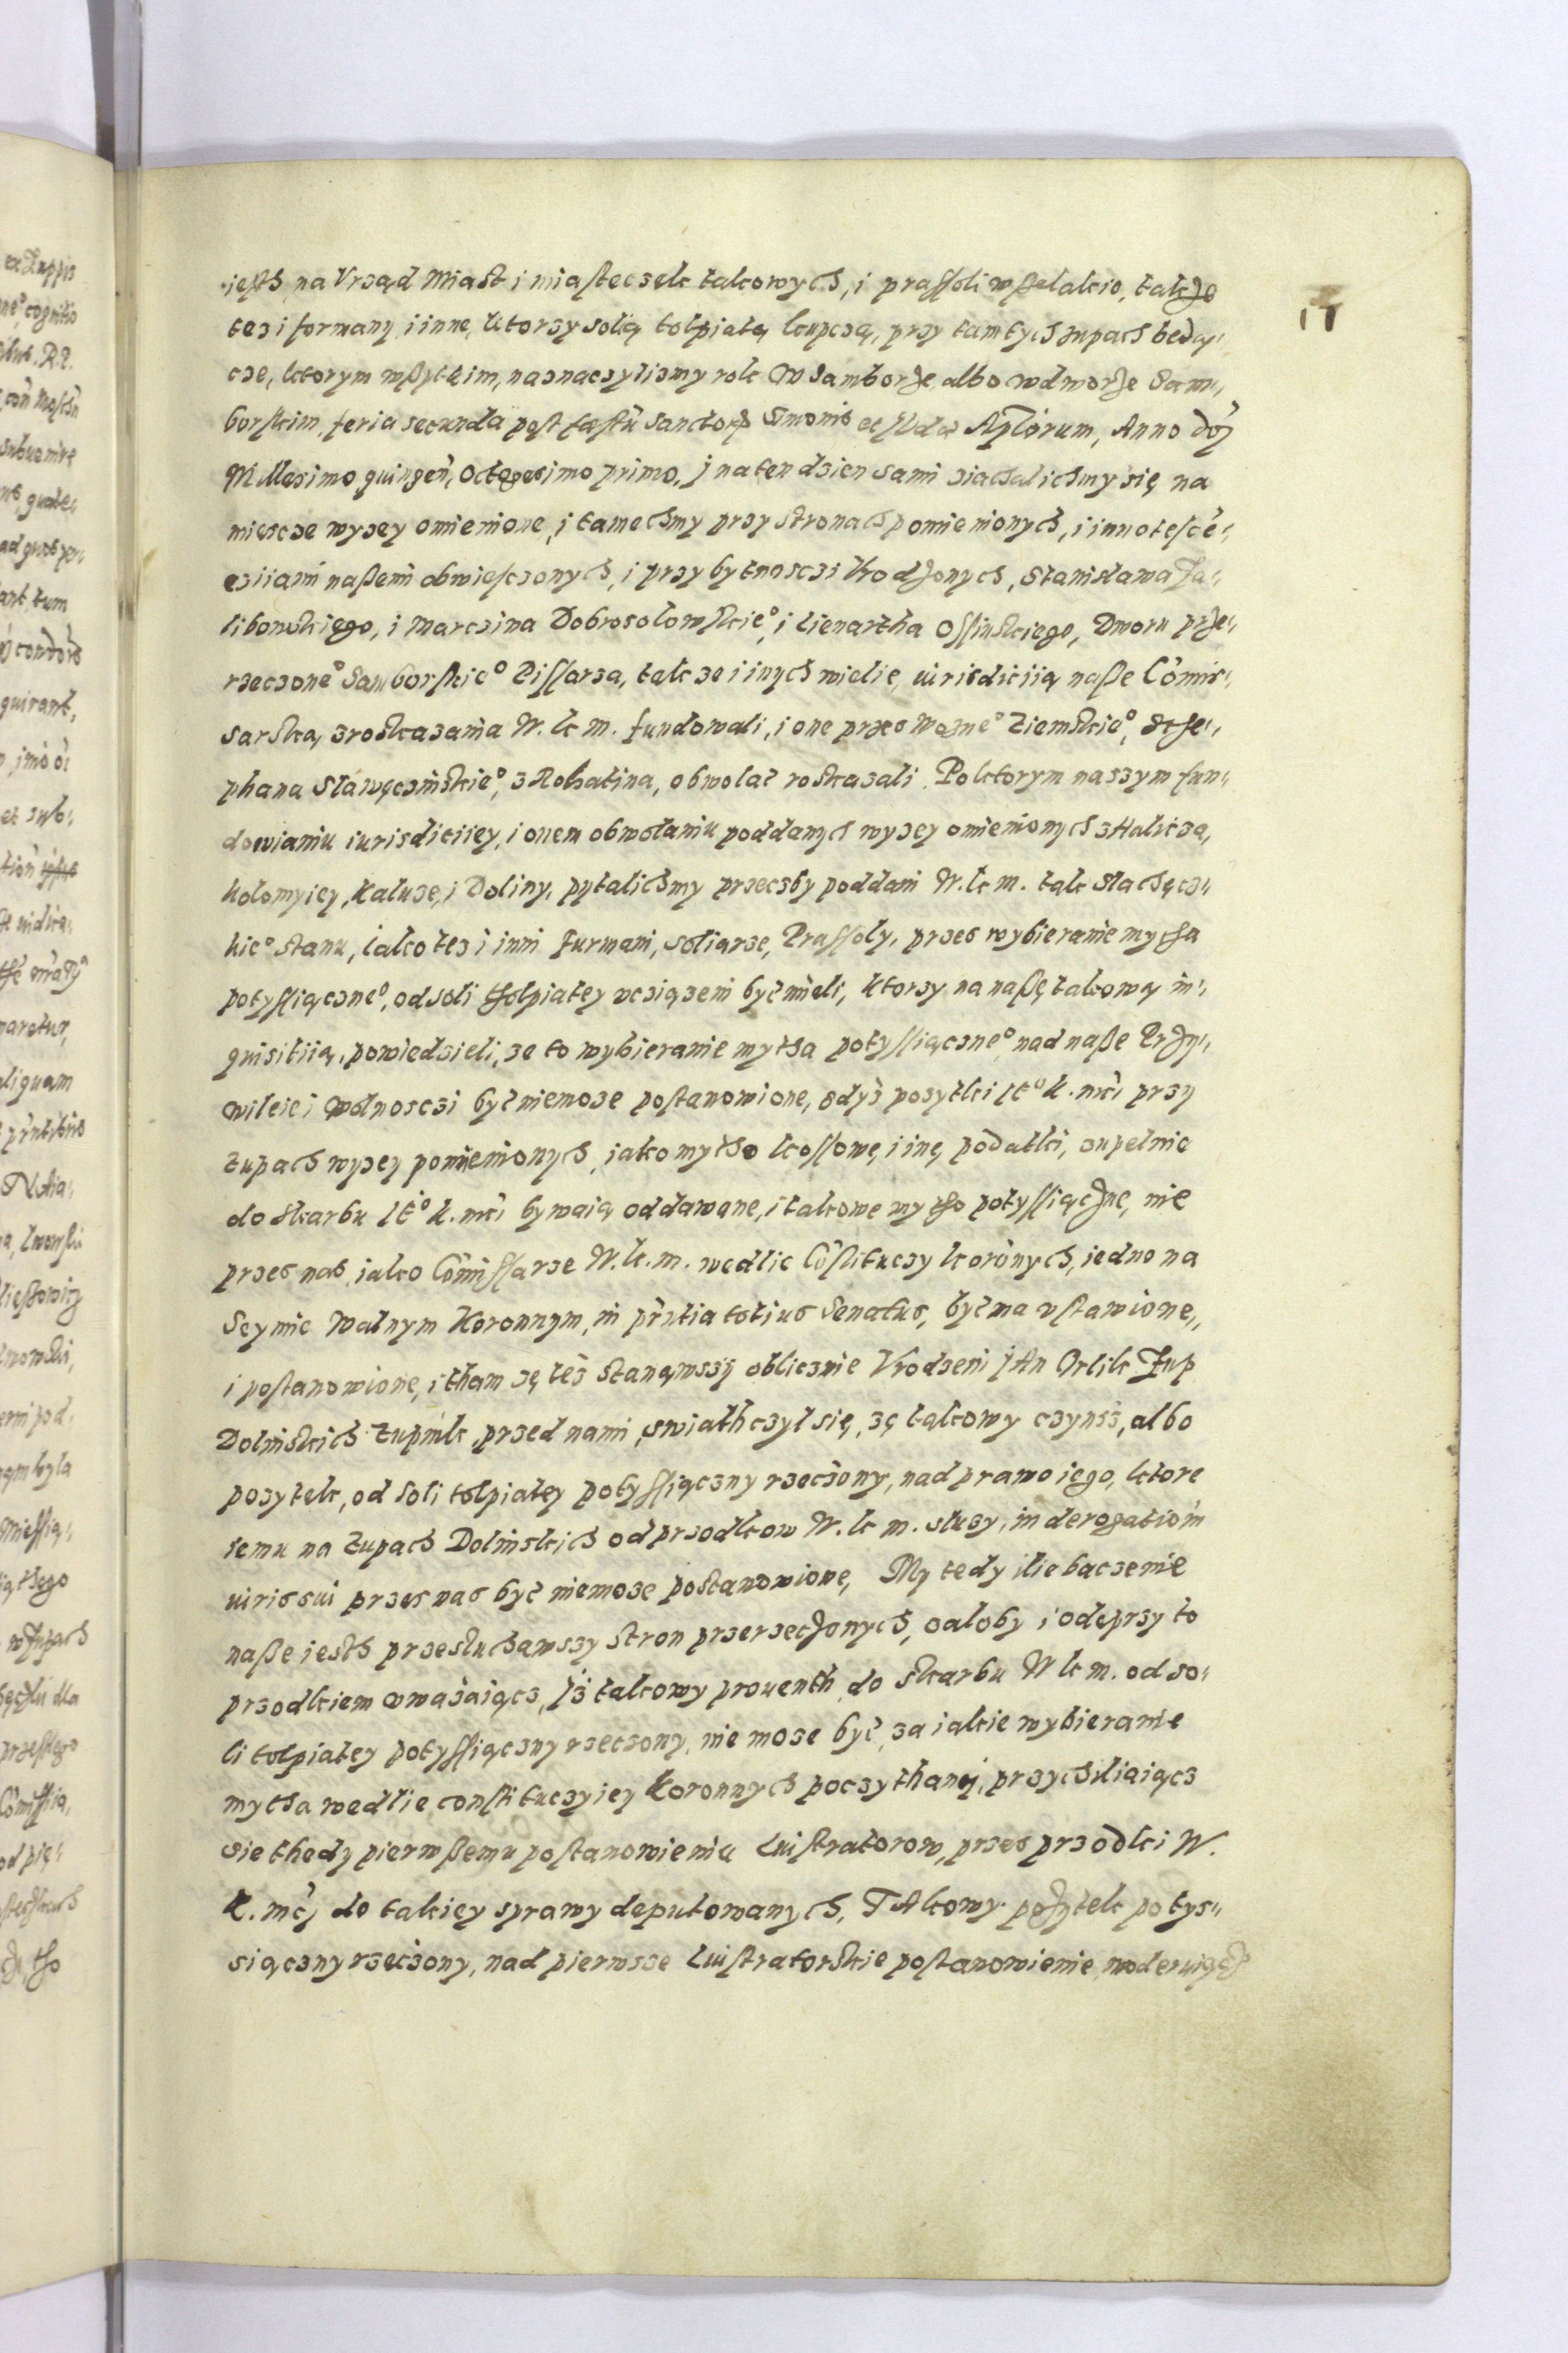 17
iesth na Vrząd Miast i miasteczek takowych, i prassoli wßelakio, takze
tez i formany i inne, ktorzy solią tolpiatą kupczą, przy tamtych zupach beday„
cze, ktorym wßytkim, naznaczylismy rok w Samborze albo wdworze Sam„
borskim, feria secunda post festũ Sanctorũ Simonis et Iudae Aplorum, Anno Doj
Millesimo quingeñ, Octogesimo primo, j naten dzien sami ziachalichmy się na
miescze wyzey omienione, i tamechmy przy stronach pomienionych, i innotescē„
cziiami naßemi obwiesczonych, i przy bytnosczi Vrodzonych, Stanisława Za„
libowskiego, i Marczina Dobrosołowskie°, i Lienartha Ossinskiego, Dworu prze„
rzeczone° Samborskie° Pissarza, tak ze i inych wielie, iurisdiciią naße Comis„
sarską, zroskazania W. k m. fundowali, i one przes Wozne° Ziemskie°, Sthe„
phana Sławęczinskie°, z Rohatina, obwolać roskazali. Po ktorym naszym fun„
dowianiu iurisdiciiey, i onem obwołaniu poddanych wyzey omienionych z Halicza,
Kolomyiey, Kalusze, i Doliny, pytalichmy przeczby poddani W. k m. tak Slachęcz„
kie° stanu, iako tez i inni Furmani, soliarze, Prassoly, przes wybieranie mytha
potyssiączne°, od soli tholpiatey vcziązeni być mieli, ktorzy na naßę takową in„
quisitiią, powiedzieli, ze to wybieranie mytha potyssiączne° nad naße Przy„
wileie i wolnosczi być niemoze postanowione, gdyż pozytki Ie° K. mći przy
Zupach wyzey pomienionych, iako mytho kossowe, i inę podatki, zupelnie
do skarbu Ie° K. mći bywaią oddawane, i takowe mytho potyssiączne, nie
przes nas iako Cōmissarze W. k. m. wedlie Cōstituczy koronych, iedno na
Seymie Walnym Koronnym, in prñtia totius Senatus, być ma vstawione„
i postanowione, i tham zę też stanąwszy oblicznie Vrodzeni JAn Orlik Zup
Dolinskich Zupnik, przed nami swiathczył się, zę takowy czynsz, albo
pozytek, od soli tolpiatey potyssiączny rzeczony, nad prawo iego, ktore
iemu na Zupach Dolinskich od przodkow W. k m. sluzy, in derogatiom
iuris sui przes nas być niemoze postanowione, My tedy ilie baczenie
naße iesth przesluchawszy stron przerzeczonych, załoby i odeprzy to
przodkiem vważaiącz, Iż takowy prouenth do skarbu W k m. od so„
li tolpiatey potyssiączny rzeczony, nie moze być za iakie wybieranie
mytha wedlie constituczyiey Koronnych poczythany, przychiliaiącz
sie thedy pierwßemu postanowieniu Luistratorow, przes przodki W.
K. mći do takiey sprawy deputowanych, TAkowy pozytek potys„
siączny rzeczony, nad pierwsze Luistratorskie postanowienie